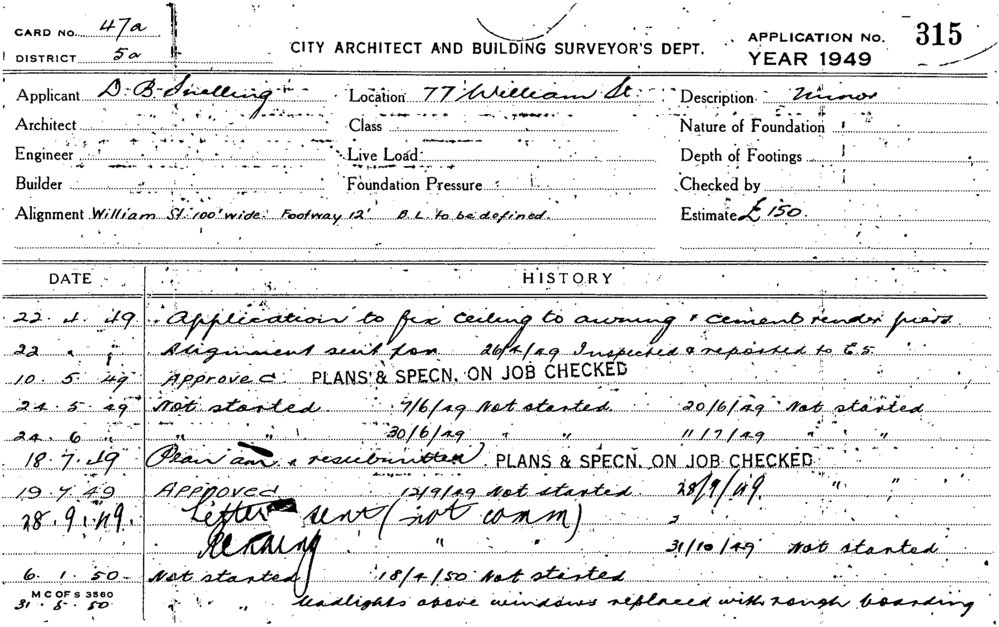 CARD No. 47a
DISTRICT 5a
CITY ARCHITECT AND BUILDING SURVEYOR'S DEPT.
APPLICATION No. 315
YEAR 1949
Applicant D. B. Snelling Location 77 William St. Description Minor
Architect Class Nature of Foundation
Engineer Live Load Depth of Footings
Builder Foundation Pressure Checked by
Alignment William St. 100' wide. Footway 12' B.L. to be defined. Estimate £150.
DATE HISTORY
22 . 4 . 49 Application to fix ceiling to awning & cement render piers
22 " " Alignment sent for 26/4/49 Inspected & reported to C.S.
10 . 5 . 49 Approved PLANS & SPECN. ON JOB CHECKED
24 . 5 . 49 Not started 7/6/49 Not started 20/6/49 Not started
24 . 6 " " " 30/6/49 " " 11/7/49 " "
18 . 7 . 49 Plan am & resubmitted PLANS & SPECN. ON JOB CHECKED
19 . 7 . 49 APPROVED 12/9/49 Not started 28/9/49 " "
28 . 9 . 49. Letter sent (not comm)
" " 31/10/49 Not started
6 . 1 . 50 Not started 18/4/50 Not started
M C OF S 3560
31 . 5 . 50 " " Leadlights above windows replaced with rough boarding